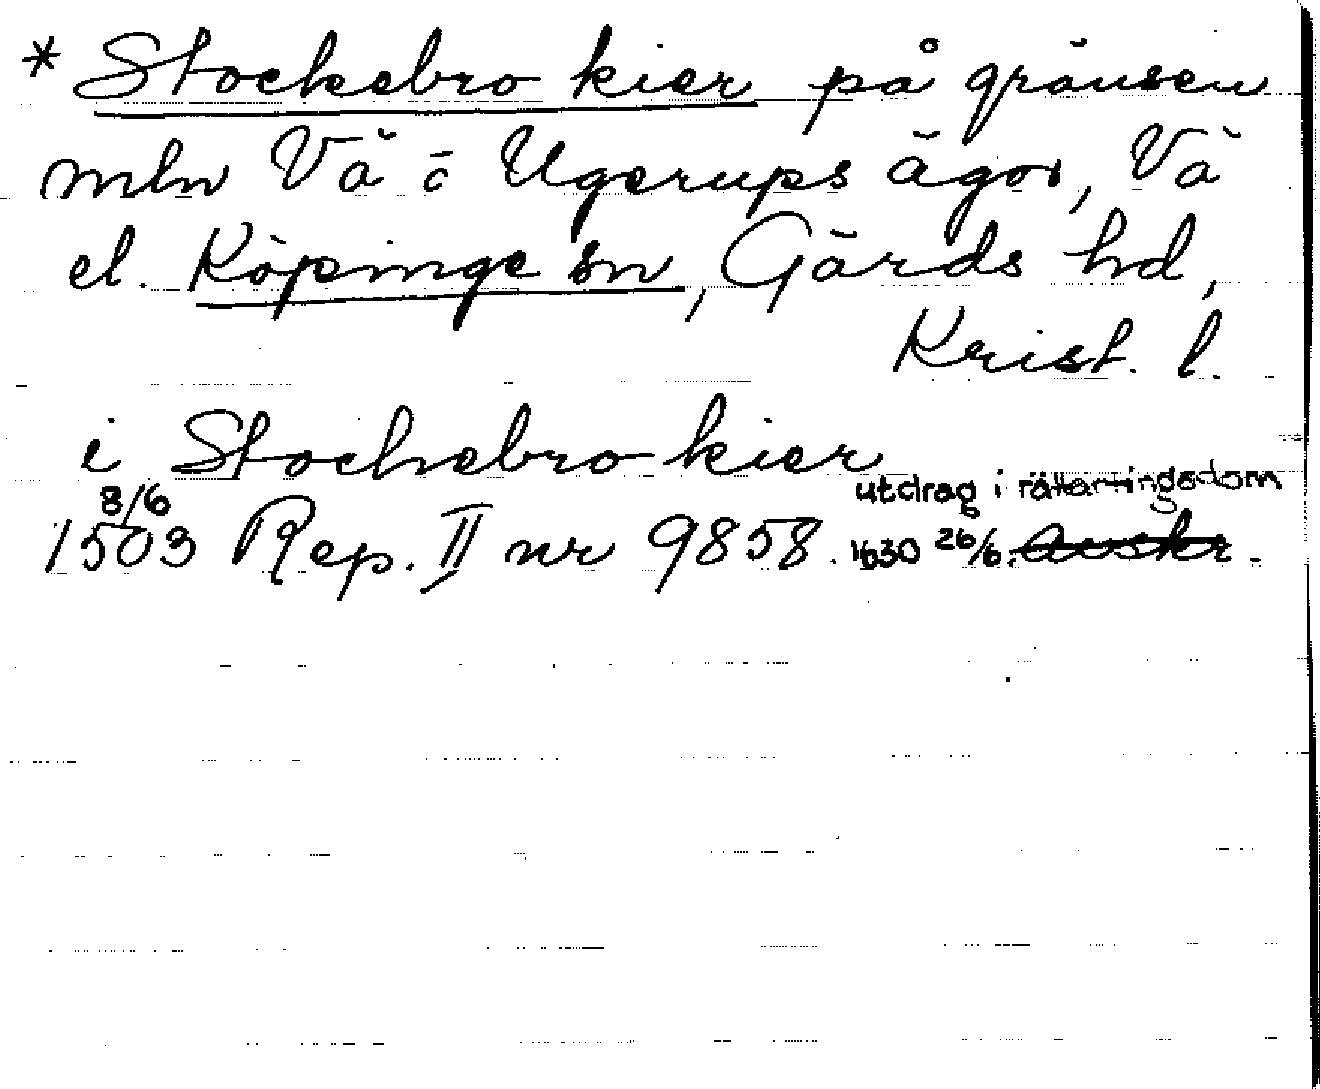 * Stockebro kier på gränsen
mln Vä o Ugerups ägor, Vä
el. Köpinge sn, Gärds hd,
Krist. l.
i Stochebro kier
8/6 utdrag i rättartingsdom
1503 Rep. II nr 9858. 1630 26/6. Avskr.